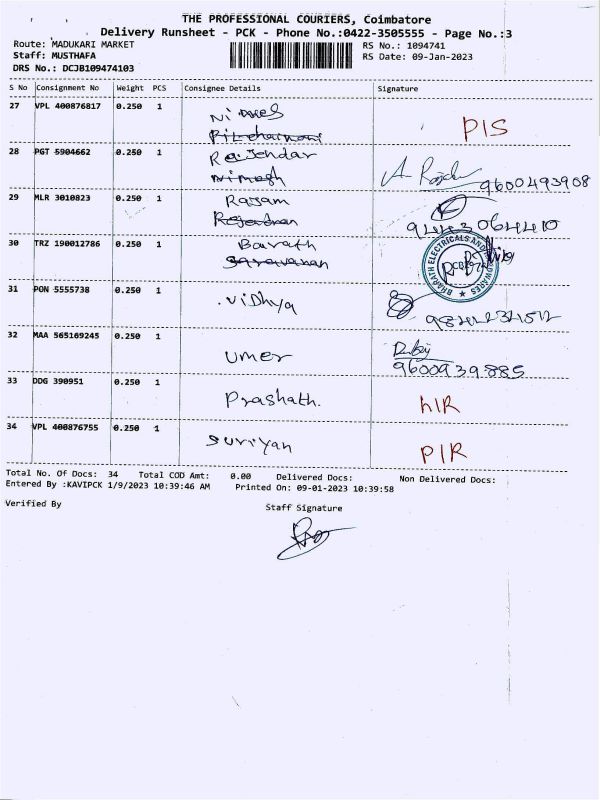 THE PROFESSIONAL COURIERS, Coimbatore
Delivery Runsheet - PCK - Phone No.:0422-3505555 - Page No.:3
Route: MADUKARI MARKET RS No.: 1094741
Staff: MUSTHAFA RS Date: 09-Jan-2023
DRS No.: DCJB109474103
S No Consignment No Weight PCS Consignee Details Signature
27 VPL 400876817 0.250 1 PIS
28 PGT 5904662 0.250 1 Rajendar
Nimesh 9600493908
29 MLR 3010823 0.250 1 Rajam
Rajendran 9443064410
30 TRZ 190012786 0.250 1 Barath
Saravanan BHARATH ELECTRICALS AND HARDWARES
31 PON 5555738 0.250 1 Vidhya
32 MAA 565169245 0.250 1 Umer 9600939885
33 DDG 390951 0.250 1 Prashath. hIR
34 VPL 400876755 0.250 1 Suriyan PIR
Total No. Of Docs: 34 Total COD Amt: 0.00 Delivered Docs: Non Delivered Docs:
Entered By :KAVIPCK 1/9/2023 10:39:46 AM Printed On: 09-01-2023 10:39:58
Verified By Staff Signature